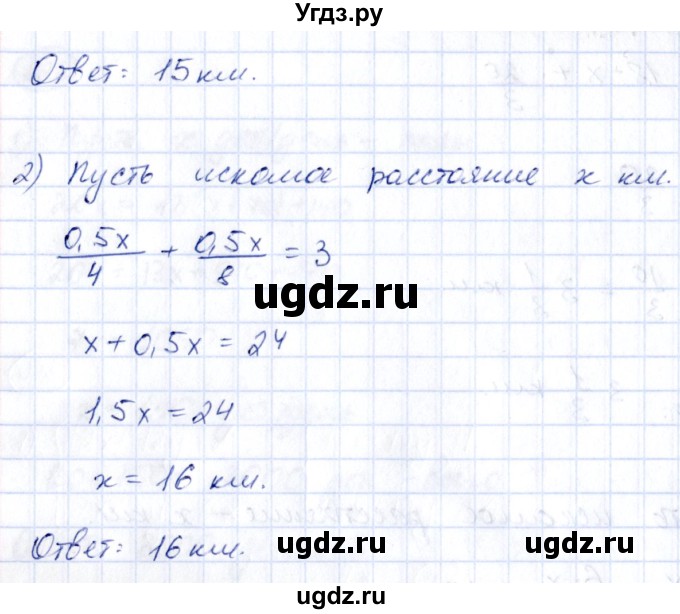 Угдз.ру
Ответ: 15 км.
2) Пусть искомое расстояние x км.
0,5x/4 + 0,5x/8 = 3
ugdz.ru
x + 0,5x = 24
1,5x = 24
x = 16 км.
Ответ: 16 км.
ugdz.ru ugdz.ru
ugdz.ru